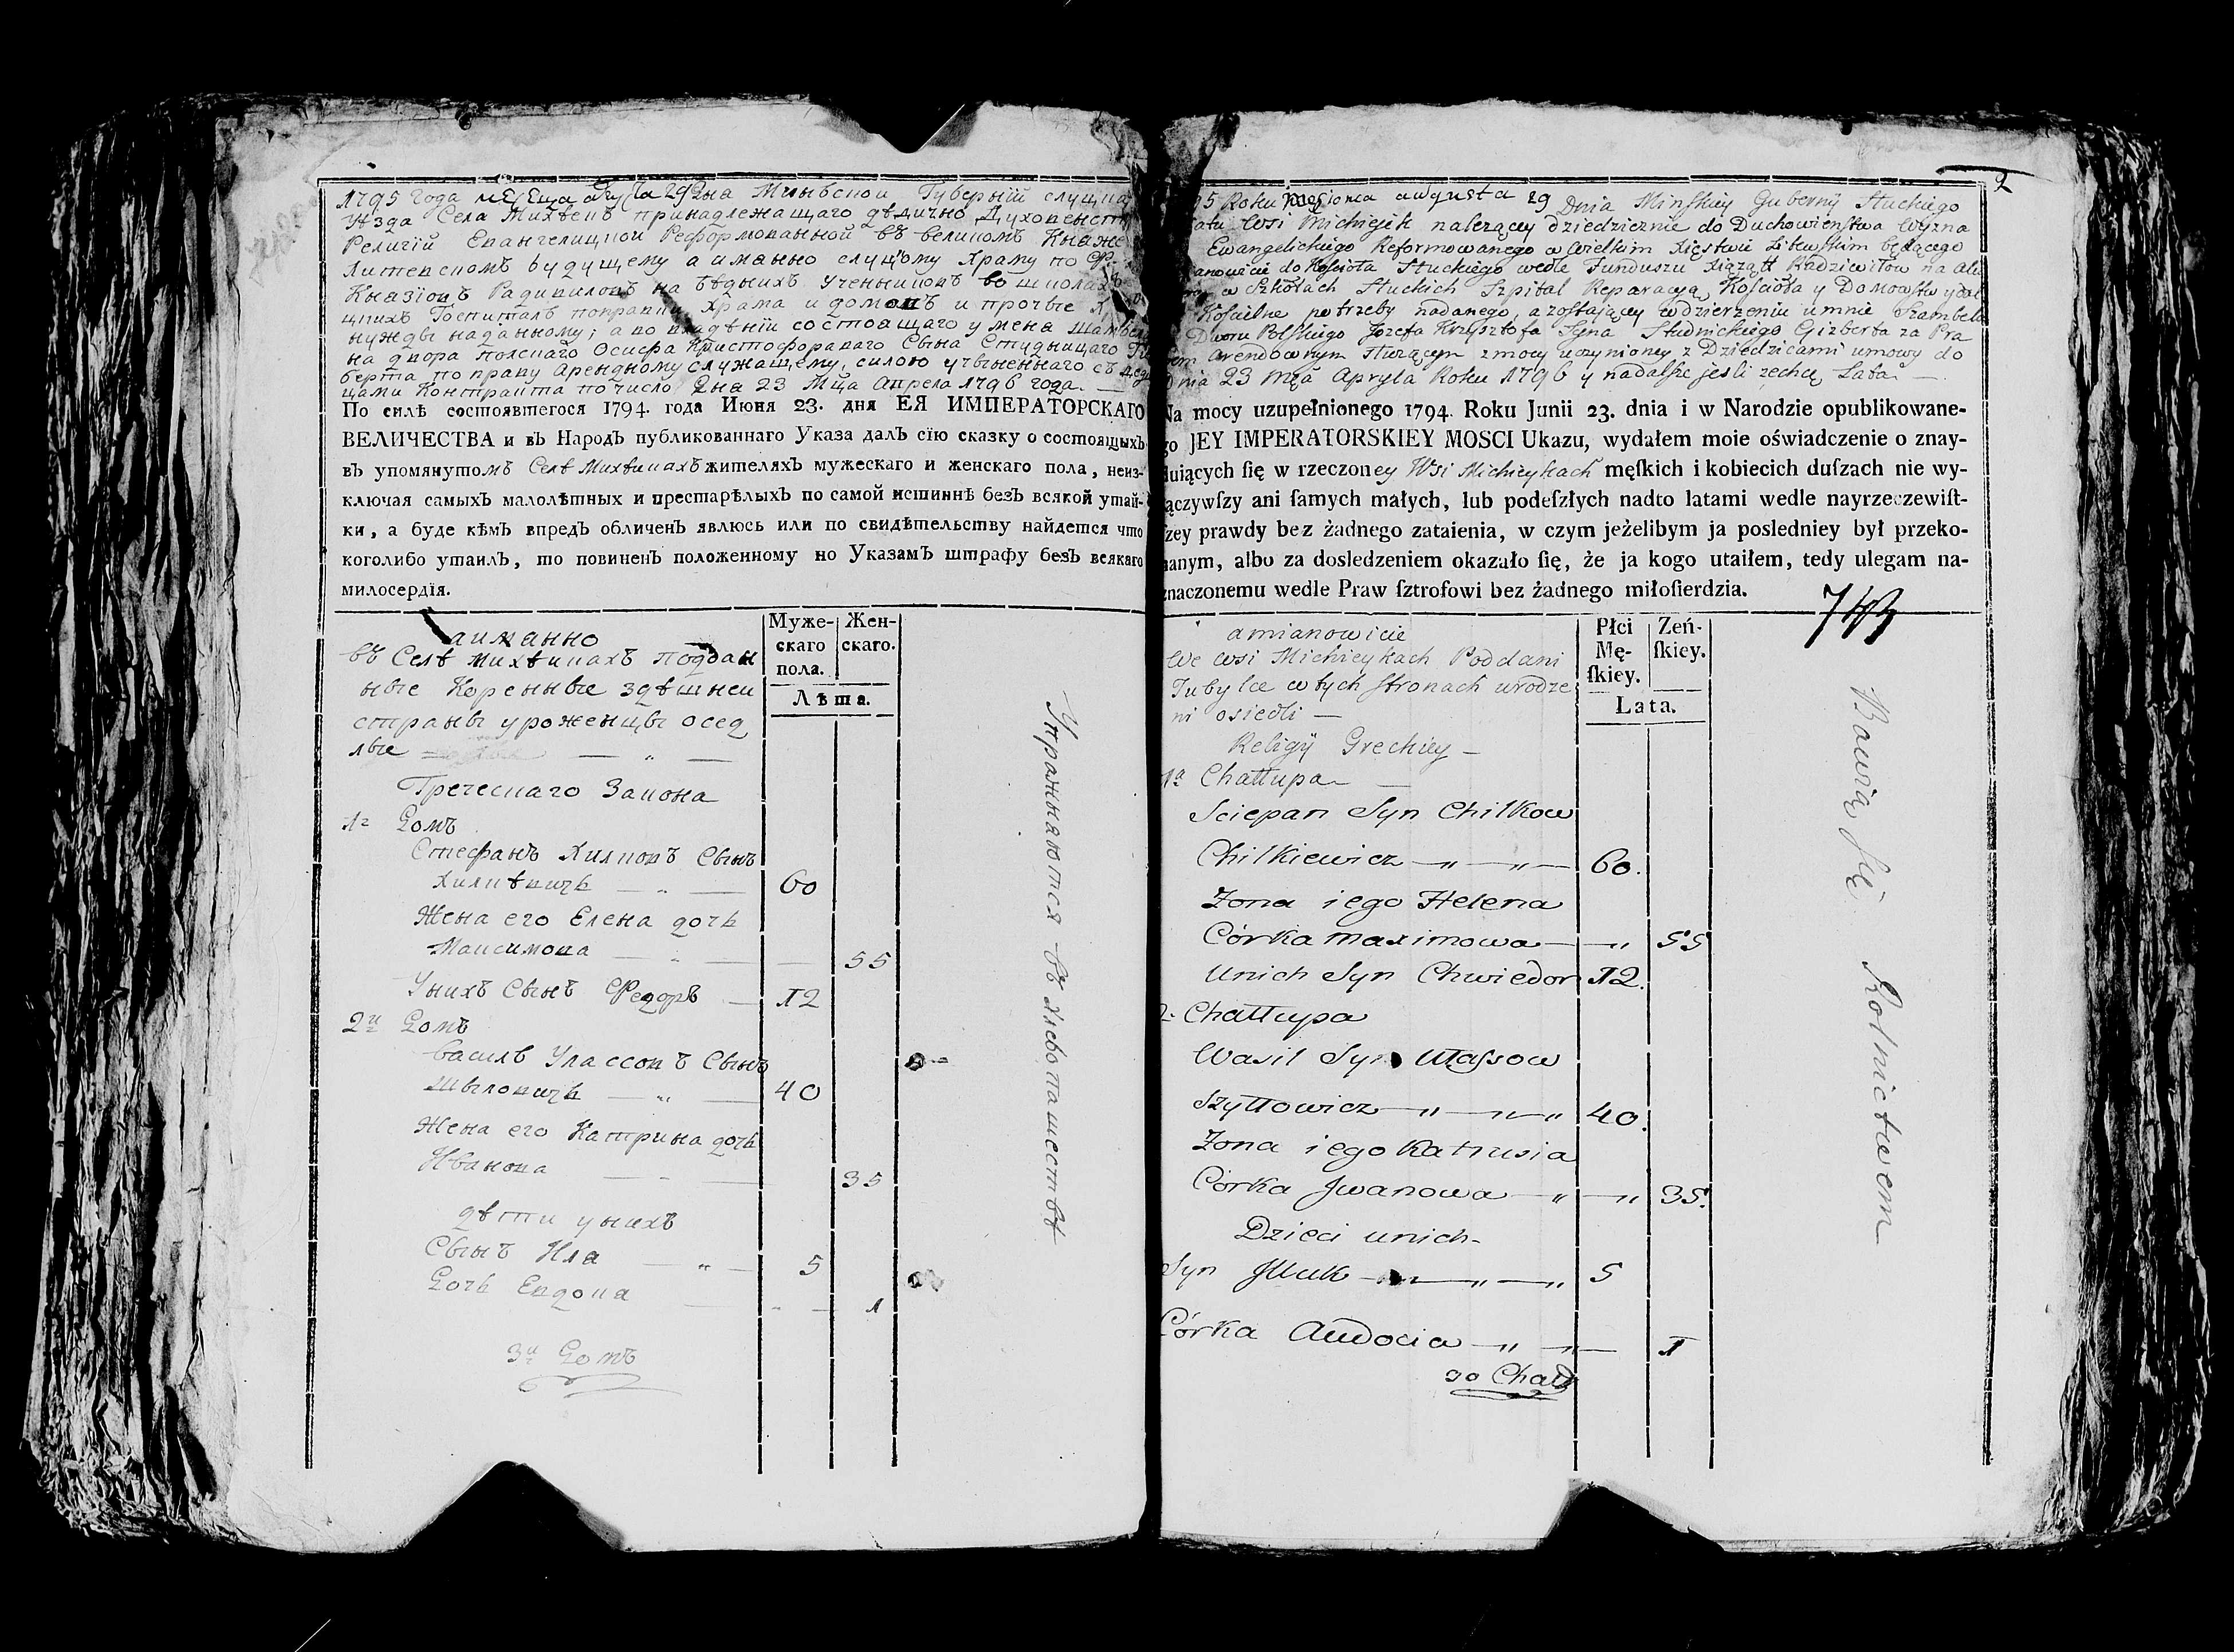 1795 года месеца августа 29 Дна Минъской Губерній слуцка
Уѣзда Села Михѣекъ принадлежащаго дѣдично Духовенст
Религіи Евангелицкои Реформованной въ великомъ Княже
Литевскомъ будущему а имянно слуцкому Храму по Ф
Князіовъ Радивиловъ на бѣдныхъ Ученыковъ во школахъ
цкихъ Госпиталъ поправки Храма и домовъ и прочые
нужды наданному; а во владѣніи состоящаго у мена Шамбел
на двора полскаго Осифа Кристофораваго Сына Студницкаго Ги
берта по праву Арендному служащему силою учыненнаго съ дед
цами Контракта по число Дна 23 Мца Апрела 1796 года. —
По силѣ состоявшегося 1794. года Июня 23. дня ЕЯ ИМПЕРАТОРСКАГО
ВЕЛИЧЕСТВА и въ Народъ публикованнаго Указа далъ сїю сказку о состоящыхъ
въ упомянутомъ Селѣ Михѣикахъ жителяхъ мужескаго и женскаго пола, неиз-
ключая самыхъ малолѣтныхъ и престарѣлыхъ по самой истиннѣ безъ всякой утай-
ки, а буде кѣмъ впредъ обличенъ явлюсь или по свидѣтельству найдется что
коголибо утаилъ, то повиненъ положенному по Указамъ штрафу безъ всякаго
милосердїя.
Муже-
скаго
пола.
Жен-
скаго.
Лѣта.
аимянно
въ Селѣ Михѣикахъ Поддан
ные Коренные здѣшнеи
страны уроженцы осед
лые — „ —
Греческаго Закона
1й Домъ
Стефанъ Хилковъ Сынъ
Хилкѣвичь — „ — 60
Жена его Елена дочь
Максимова — „ — 55
Унихъ Сынъ Федоръ — 12
2й Домъ
Василь Улассовъ Сынъ
Шыловичь — „ — 40
Жена его Катрина дочь
Иванова — — 35
дѣти унихъ
Сынъ Иля — „ — 5
Дочь Евдока — „ — 1
3й Домъ
Упражняются въ хлебопашествѣ
2
95 Roku miesionca augusta 29 Dnia Minskiey Guberny Sluckiego
atu Wsi Michiejek należącey dziedzicznie do Duchowienstwa Wyzna
Ewangelickiego Reformowanego w Wielkim Xięstwie Litewskim będącego
anowicie do Kościoła Słuckiego wedle Funduszu Xiążąt Radziwiłow na
w Szkołach Słuckich Szpital Reparacyą Kościoła y Domowstw y dal
Kościelne potrzeby nadanego, a zostającey w dzierzeniu u mnie Szambela
Dworu Polskiego Jozefa Krzysztofa Syna Studnickiego Gizberta za Pra
em arendownym służącym z mocy uczynioney z Dziedzicami umowy do
dnia 23 Mca Apryla Roku 1796 y nadalsze jesli zechcą Lata. —
Na mocy uzupełnionego 1794. Roku Junii 23. dnia i w Narodzie opublikowane-
go JEY IMPERATORSKIEY MOSCI Ukazu, wydałem moie oświadczenie o znay-
duiących ſię w rzeczoney Wsi Michieykach męſkich i kobiecich duſzach nie wy-
ączywſzy ani ſamych małych, lub podeſzłych nadto latami wedle nayrzeczewiſt-
zey prawdy bez żadnego zataienia, w czym jeżelibym ja posledniey był przeko-
nanym, albo za dosledzeniem okazało ſię, że ja kogo utaiłem, tedy ulegam na-
znaczonemu wedle Praw ſztrofowi bez żadnego miłoſierdzia.
Płci
Mę-
ſkiey.
Zeń-
ſkiey.
Lata.
amianowicie
We wsi Michieykach Poddani
Tubylce w tych stronach urodze
ni osiedli —
Religÿ Grechiey —
1a Chałłupa —
Sciepan Syn Chilkow
Chilkiewicz — „ — „ — 60.
Zona iego Helena
Córka Maximowa — — „ 55
Unich Syn Chwiedor 12.
2. Chałłupa
Wasil Syn Ułassow
Szyłłowicz — „ — „ 40.
Zona iego Katrusia
Córka Jwanowa — „ — „ 35.
Dzieci unich-
Syn Jlluk — „ — „ 5
Córka Audocia — „ — „ — 1
30 Chał
Bawią się Rolnictwem